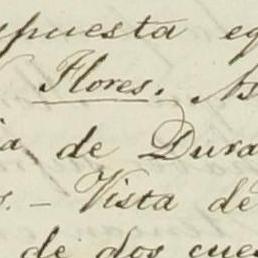 puesta eq
Flores. As
ia de Dura
s. — Vista de
de dos cues